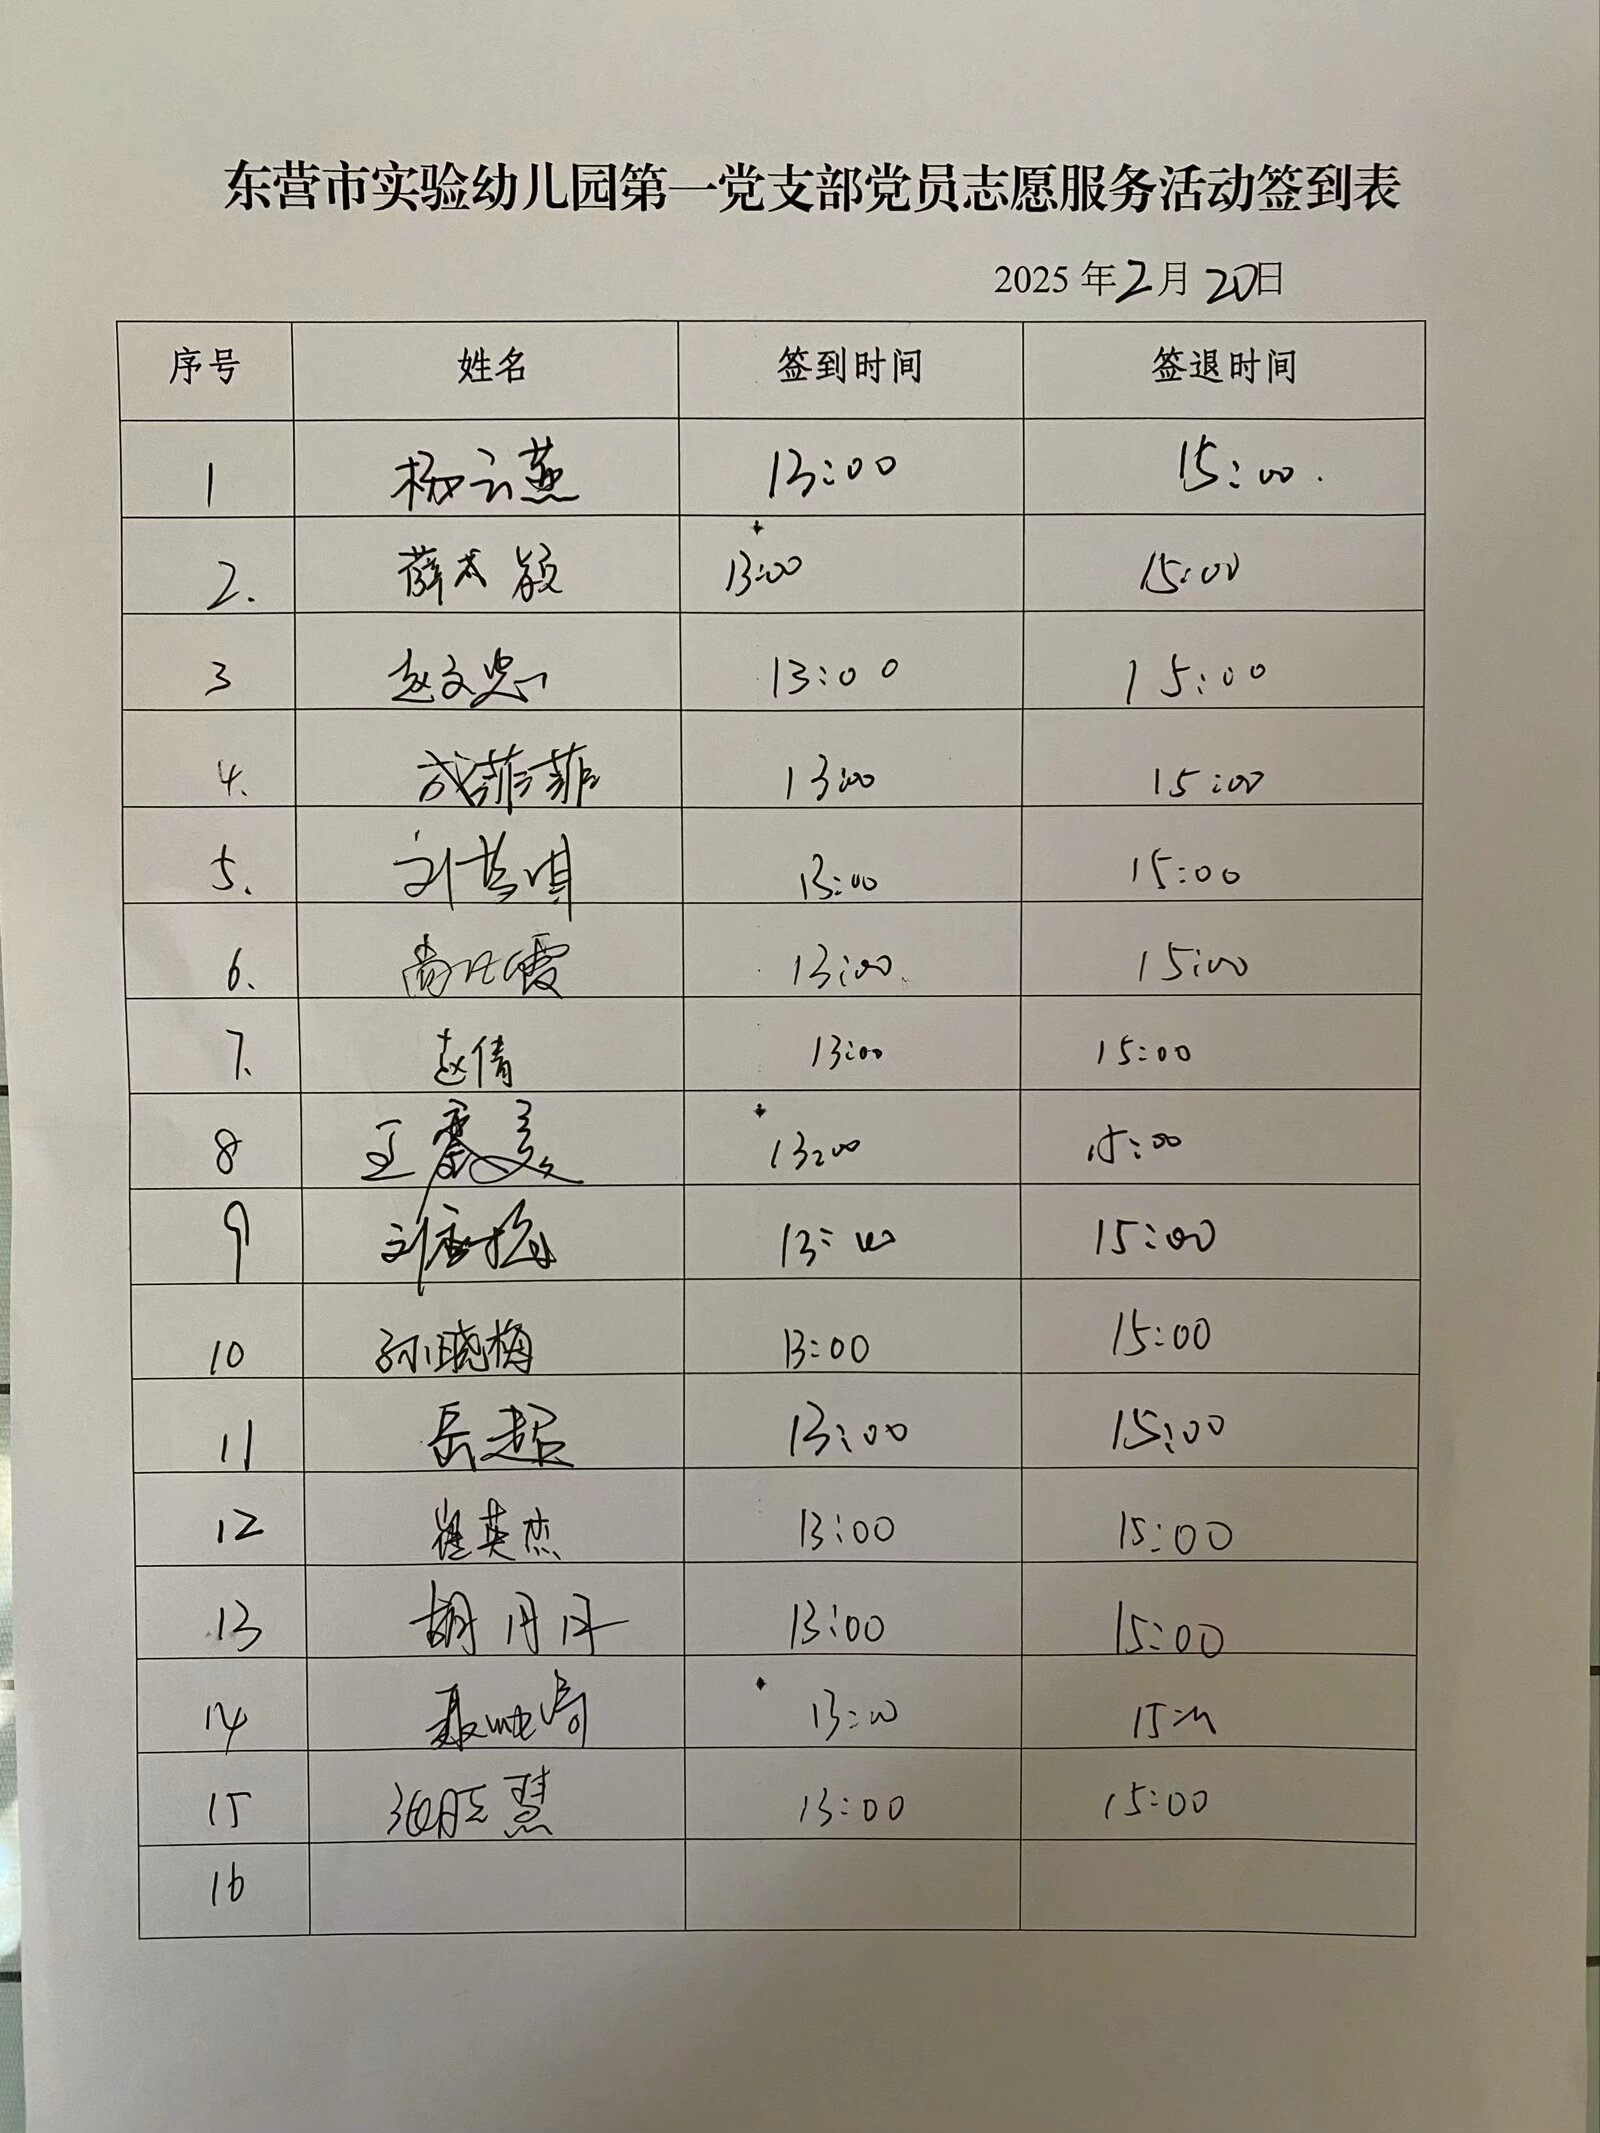 东营市实验幼儿园第一党支部党员志愿服务活动签到表
2025年2月20日
序号 姓名 签到时间 签退时间
1 杨云燕 13:00 15:00.
2. 薛 13:00 15:00
3 赵文忠 13:00 15:00
4. 成菲菲 13:00 15:00
5. 刘 琪 13:00 15:00
6. 尚 霞 13:00 15:00
7. 赵倩 13:00 15:00
8 王 美 13:00 15:00
9 刘 13:00 15:00
10 孙晓梅 13:00 15:00
11 岳超 13:00 15:00
12 崔英杰 13:00 15:00
13 胡丹丹 13:00 15:00
14 聂 13:00 15:00
15 慧 13:00 15:00
16